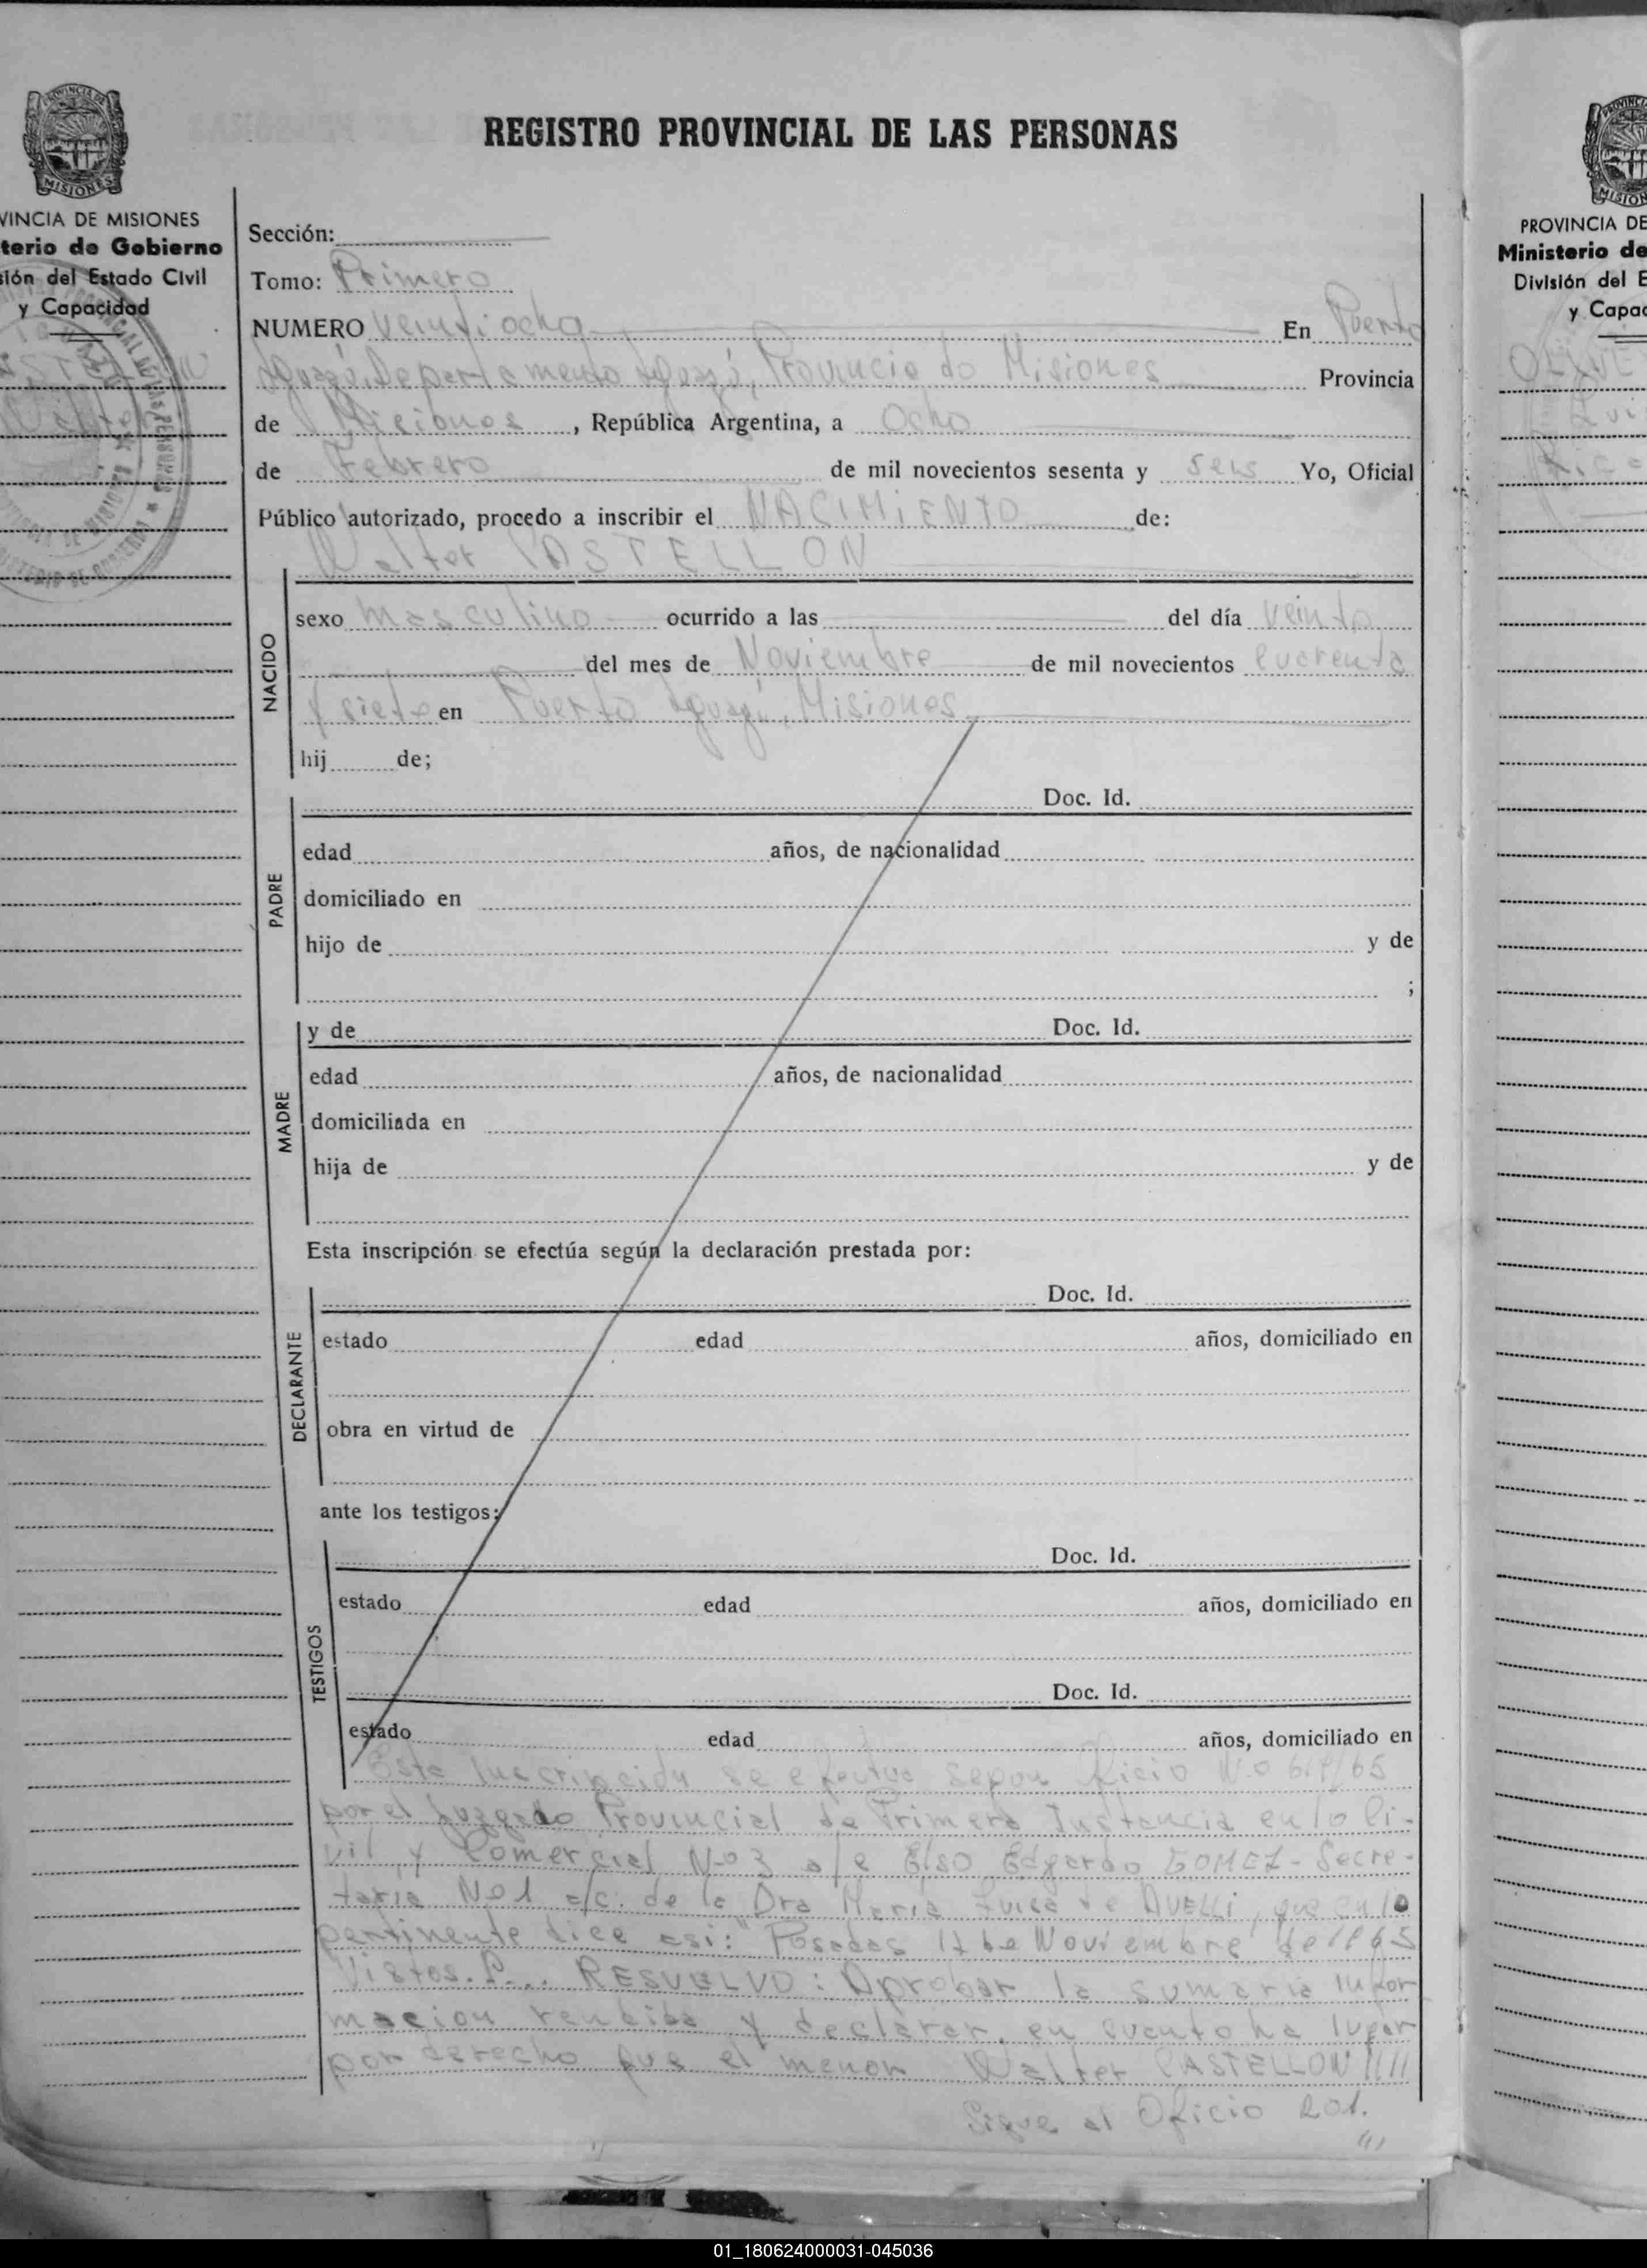 REGISTRO PROVINCIAL DE LAS PERSONAS
MISIONES
VINCIA DE MISIONES
terio de Gobierno
sión del Estado Civil
y Capacidad
Sección:
Tomo: Primero
NUMERO Veintiocho En Puerto
Iguazú, Departamento Iguazú, Provincia de Misiones Provincia
de Misiones, República Argentina, a Ocho
de Febrero de mil novecientos sesenta y seis Yo, Oficial
Público autorizado, procedo a inscribir el NACIMIENTO de:
Walter CASTELLON
NACIDO
sexo masculino ocurrido a las del día veinte
del mes de Noviembre de mil novecientos cuarenta
y siete en Puerto Iguazú, Misiones
hij de;
PADRE
Doc. Id.
edad años, de nacionalidad
domiciliado en
hijo de y de
;
MADRE
y de Doc. Id.
edad años, de nacionalidad
domiciliada en
hija de y de
Esta inscripción se efectúa según la declaración prestada por:
DECLARANTE
Doc. Id.
estado edad años, domiciliado en
obra en virtud de
ante los testigos:
TESTIGOS
Doc. Id.
estado edad años, domiciliado en
Doc. Id.
estado edad años, domiciliado en
Esta Inscripción se efectua segun Oficio No /65
por el Juzgado Provincial de Primera Instancia en lo Ci-
vil y Comercial No 3 a/c Elso Edgardo GOMEZ - Secre-
taria No 1 a/c. de la Dra Maria Luisa de AVELLI, que en lo
pertinente dice asi: "Posadas 17 de Noviembre de 1965
Vistos. RESUELVO: Aprobar la sumaria infor
macion rendida y declarar, en cuanto ha lugar
por derecho que el menor Walter CASTELLON
Sigue al Oficio 201.
PROVINCIA DE
Ministerio de
División del E
y Capac
01_180624000031-045036